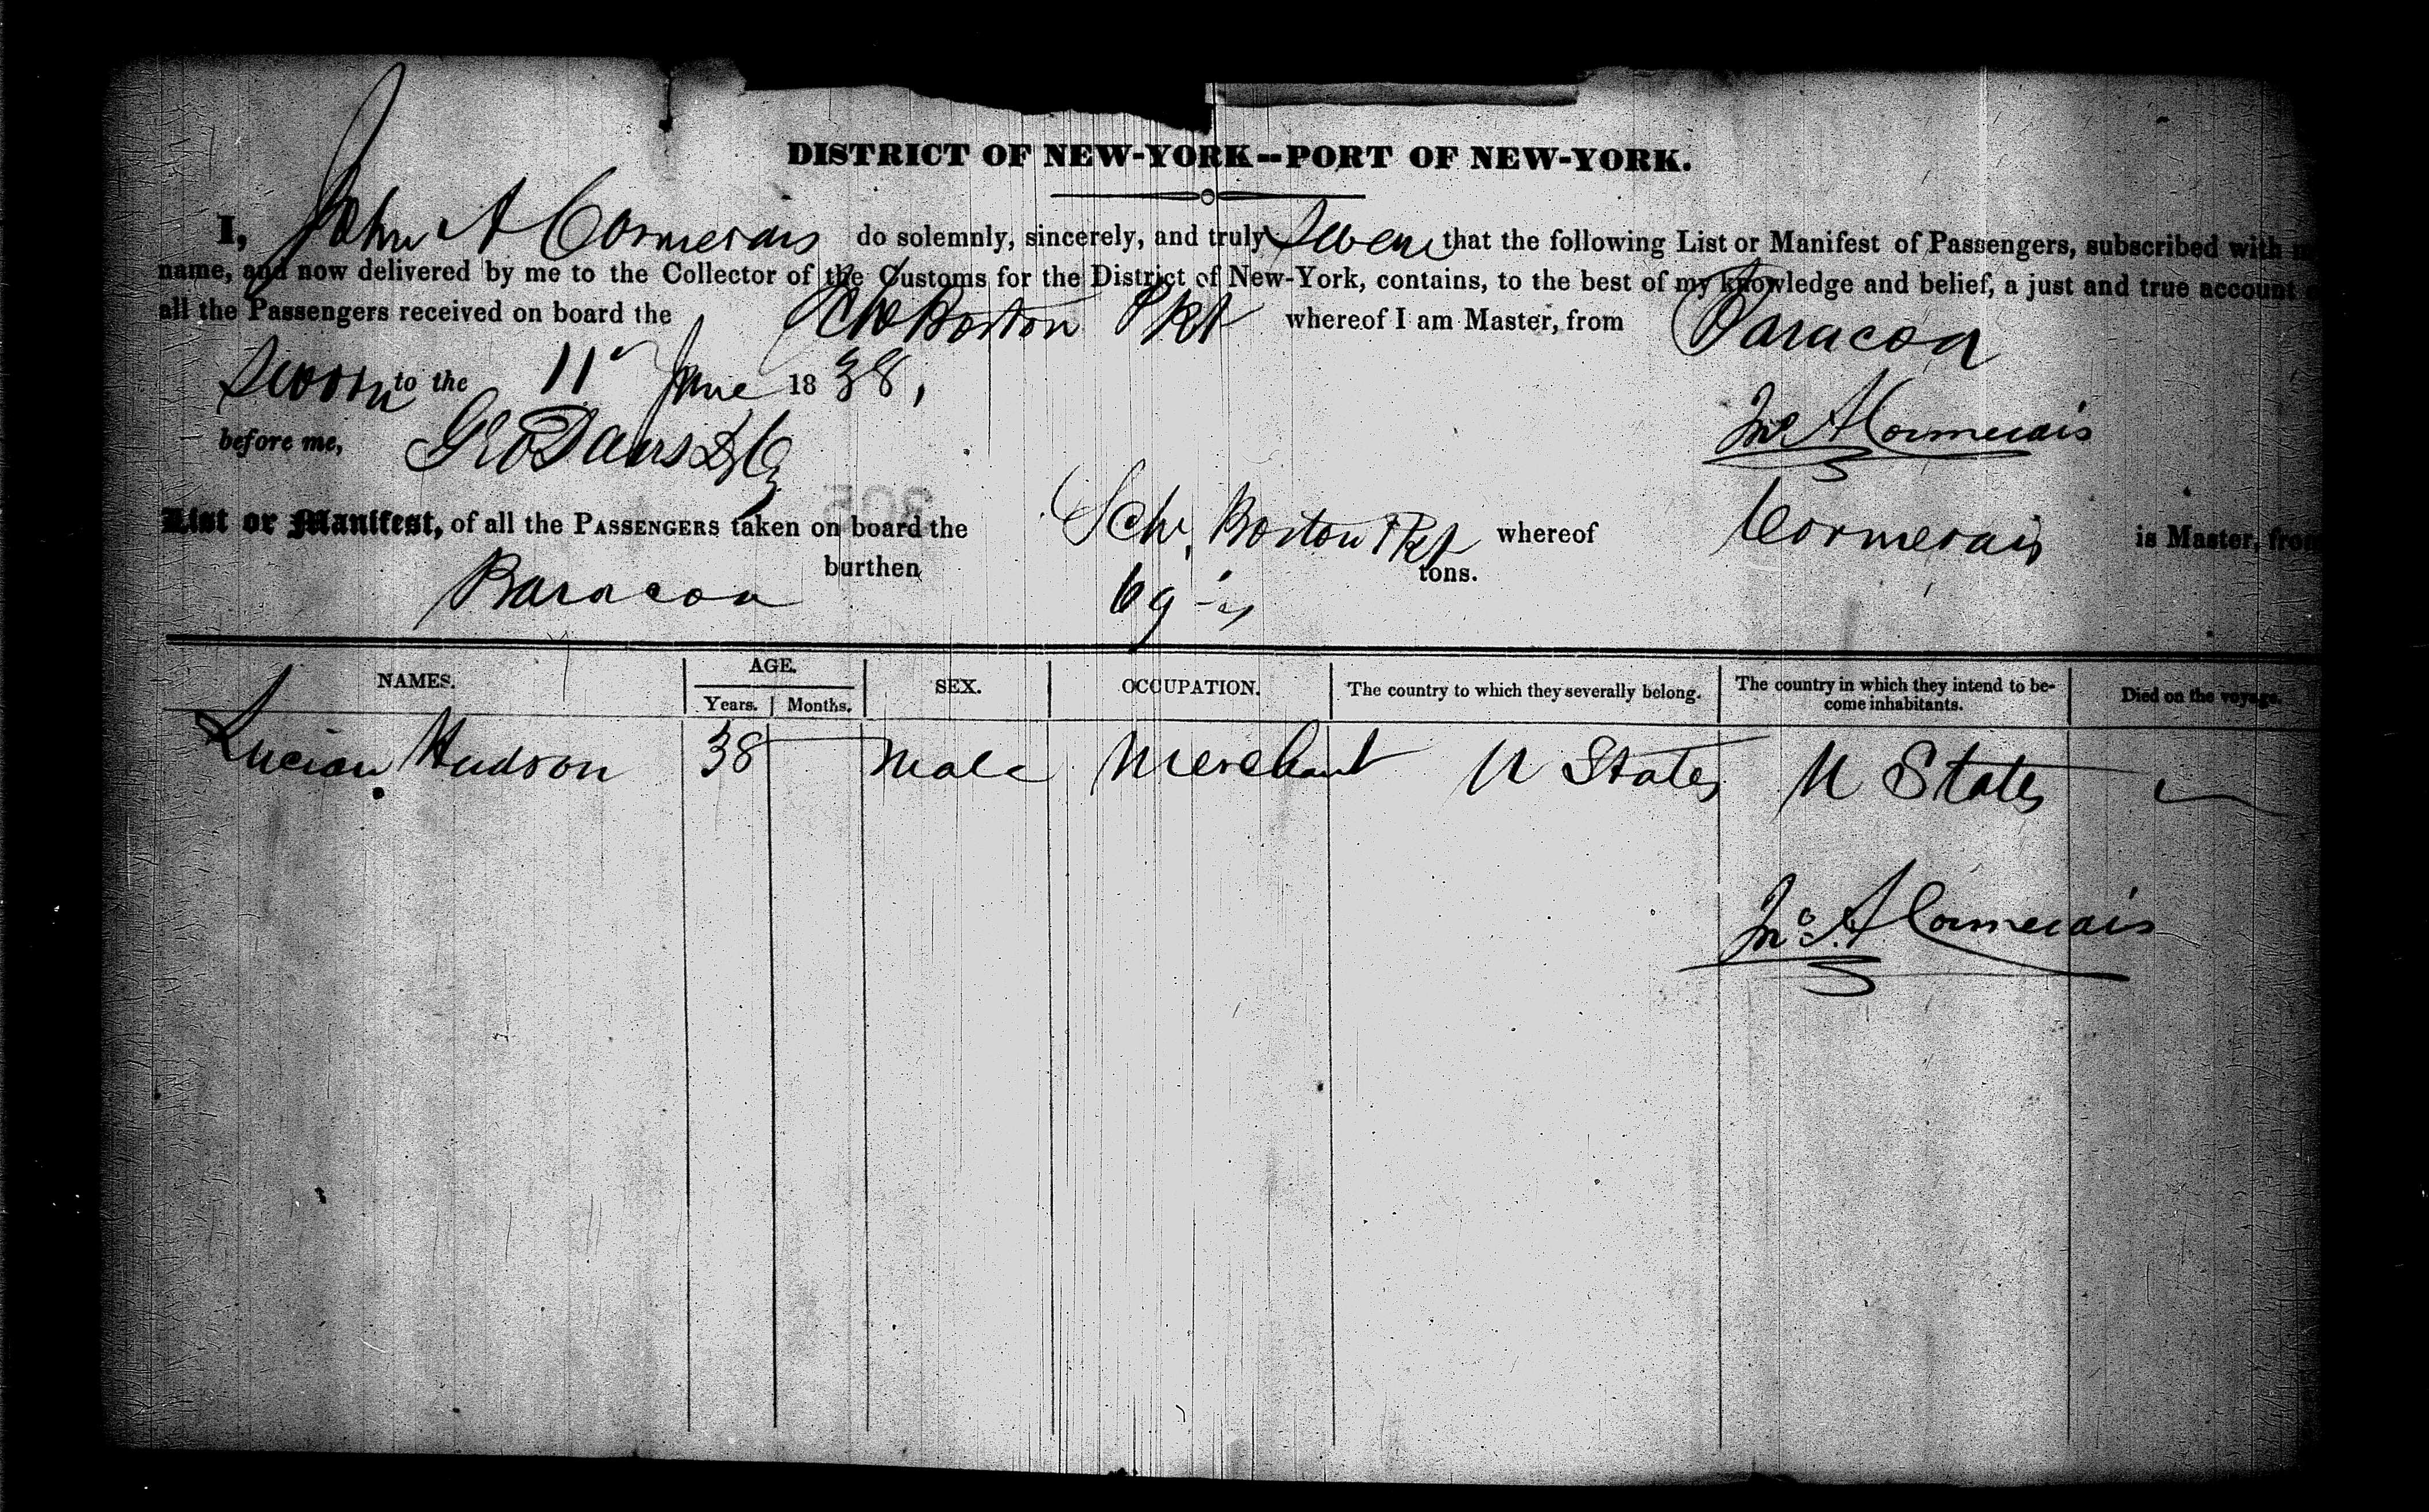 DISTRICT OF NEW-YORK--PORT OF NEW-YORK.
I, John A Cormerais do solemnly, sincerely, and truly swear that the following List or Manifest of Passengers, subscribed with
name, and now delivered by me to the Collector of the Customs for the District of New-York, contains, to the best of my knowledge and belief, a just and true account
all the Passengers received on board the Sch Boston Pkt whereof I am Master, from Baracoa
Sworn to the 11 June 1838,
Jno A Cormerais
before me, Geo Davis
List or Manifest, of all the PASSENGERS taken on board the Sch, Boston Pkt whereof Cormerais is Master, from
Baracoa burthen 69 tons.
NAMES. AGE. SEX. OCCUPATION. The country to which they severally belong. The country in which they intend to be-
come inhabitants. Died on the voyage.
Years. Months.
Lucian Hudson 38 Male Merchant U States U States
Jno A Cormerais